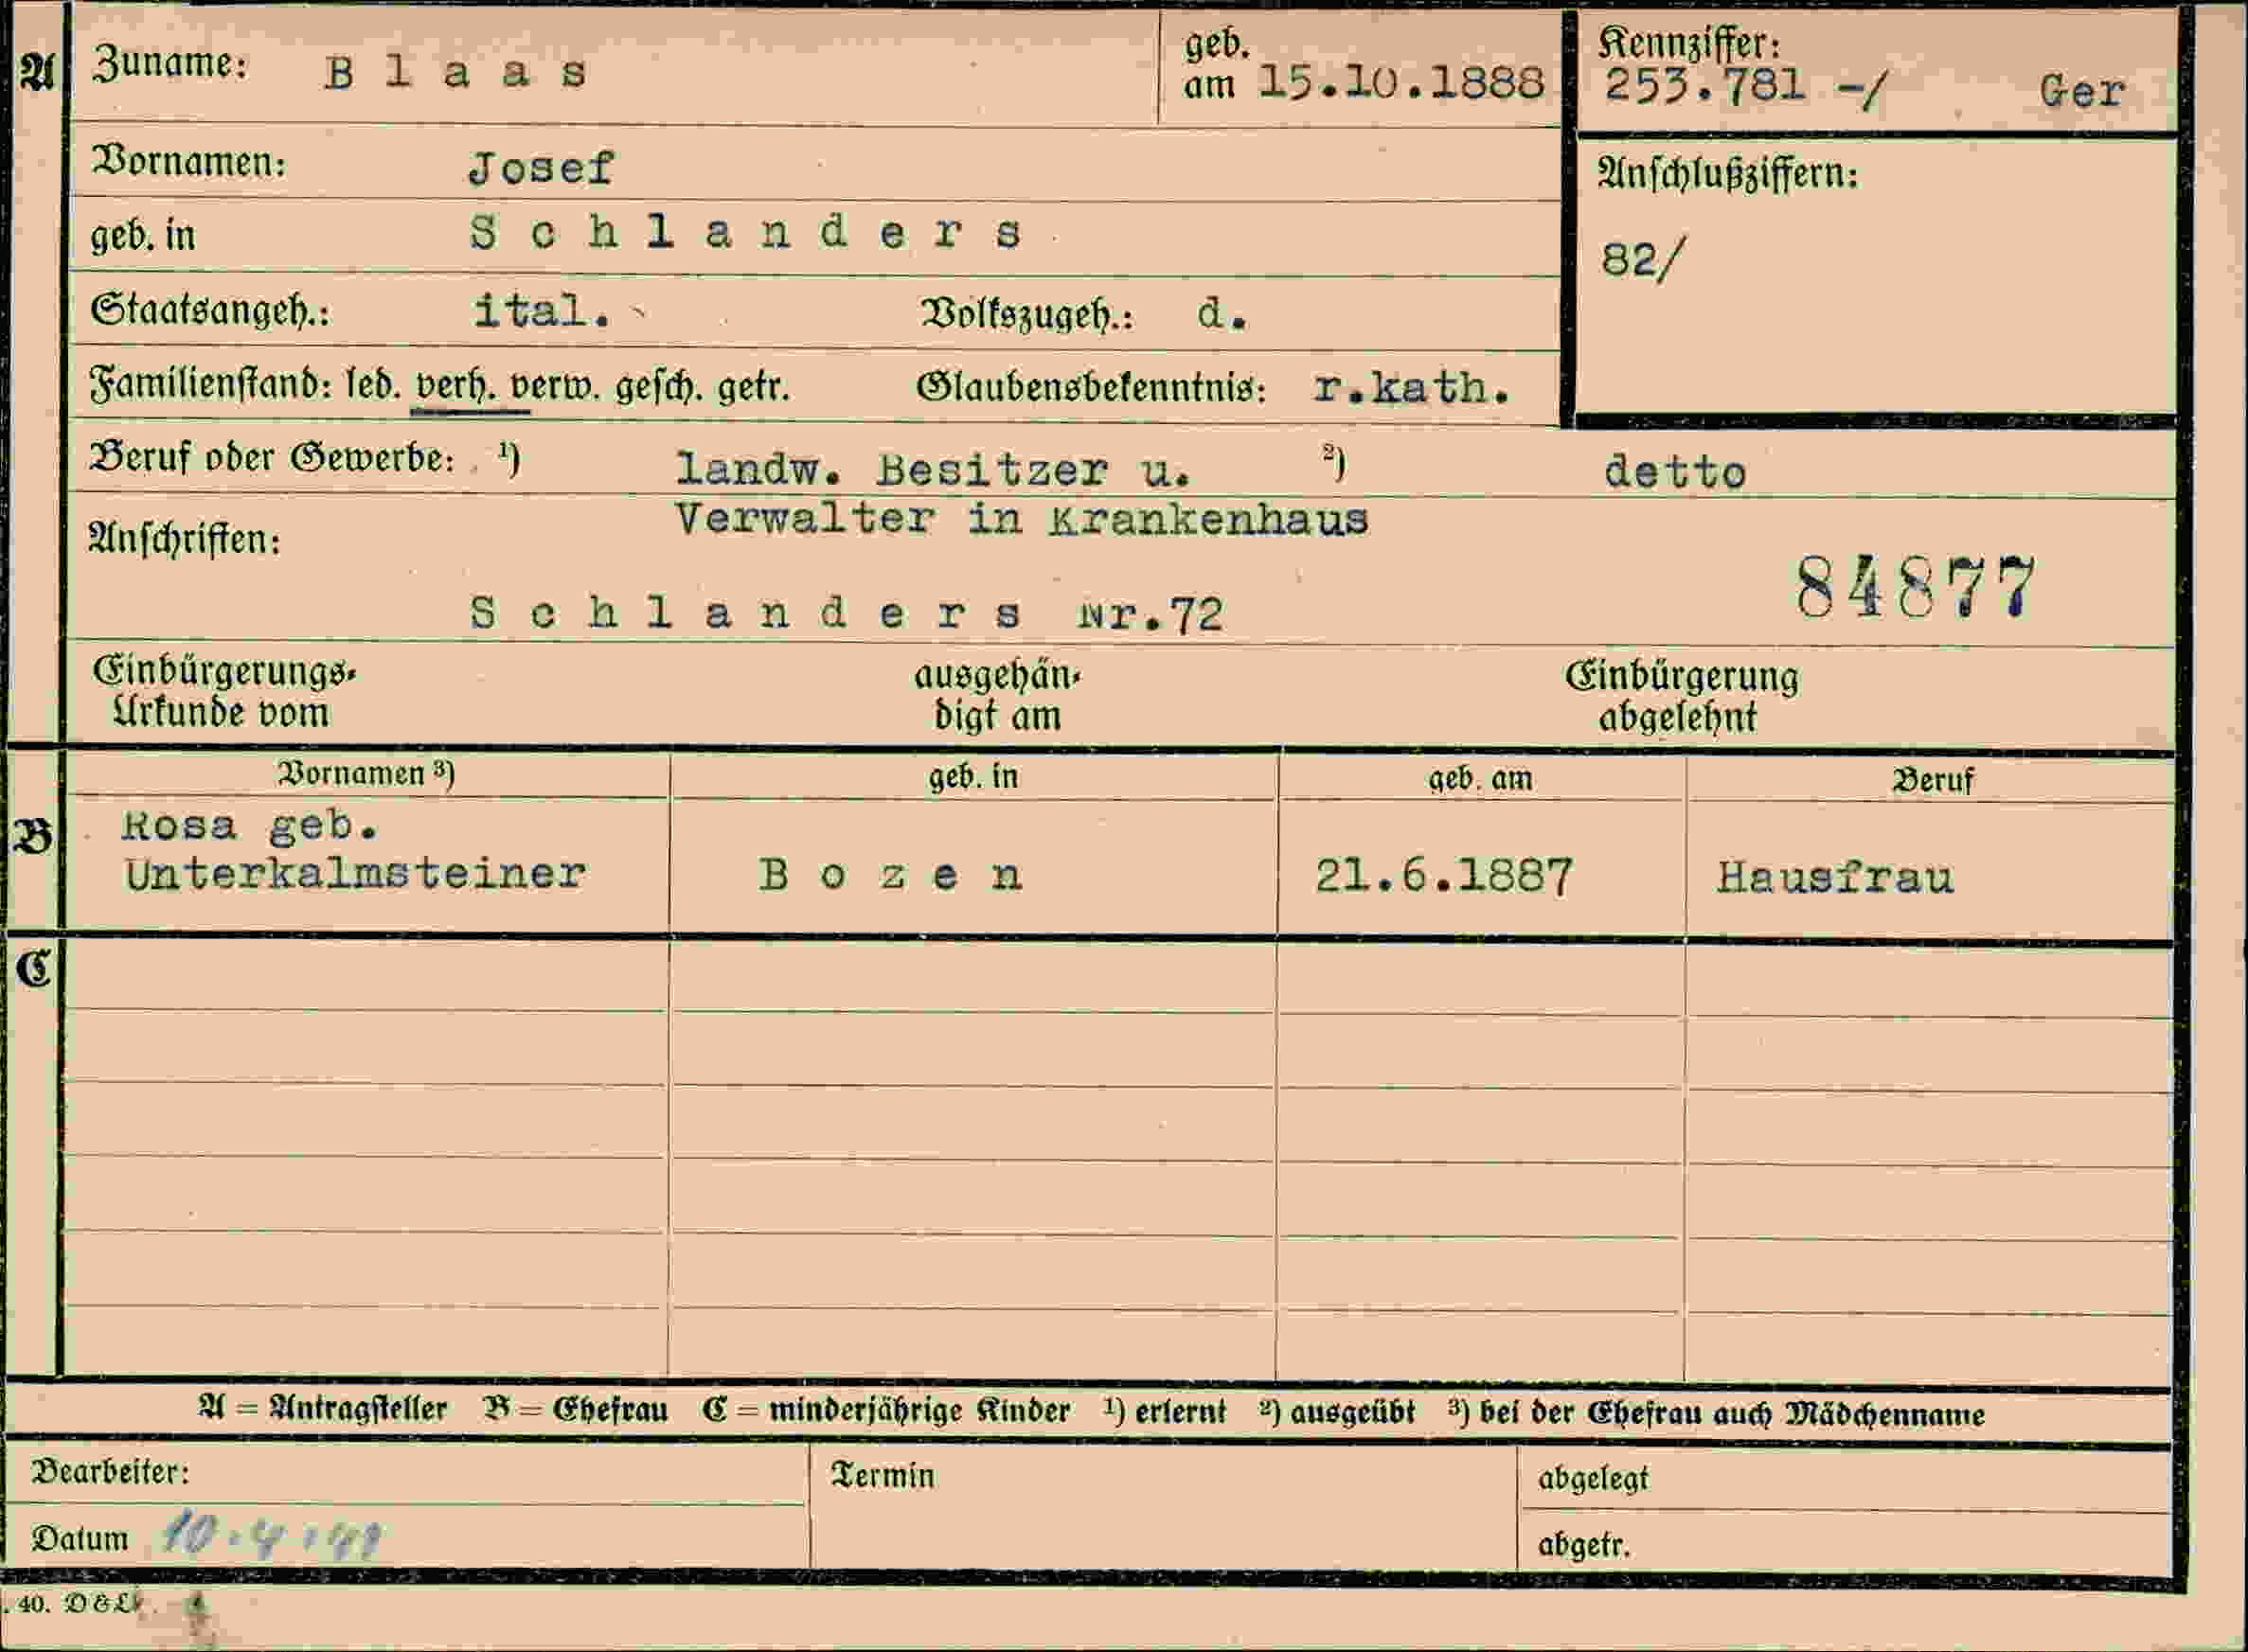 A Zuname: Blaas geb. am 15.10.1888 Kennziffer: 253.781 -/ Ger
Vornamen: Josef Anschlußziffern:
geb. in Schlanders 82/
Staatsangeh.: ital. Volkszugeh.: d.
Familienstand: led. verh. verw. gesch. getr. Glaubensbekenntnis: r.kath.
Beruf oder Gewerbe: ¹) landw. Besitzer u. ²) detto
Verwalter in Krankenhaus
Anschriften:
84877
Schlanders Nr.72
Einbürgerungs- ausgehän- Einbürgerung
Urkunde vom digt am abgelehnt
Vornamen ³) geb. in geb. am Beruf
B Rosa geb.
Unterkalmsteiner Bozen 21.6.1887 Hausfrau
C
A = Antragsteller B = Ehefrau C = minderjährige Kinder ¹) erlernt ²) ausgeübt ³) bei der Ehefrau auch Mädchenname
Bearbeiter: Termin abgelegt
Datum 10.4.41 abgetr.
. 40. D&L